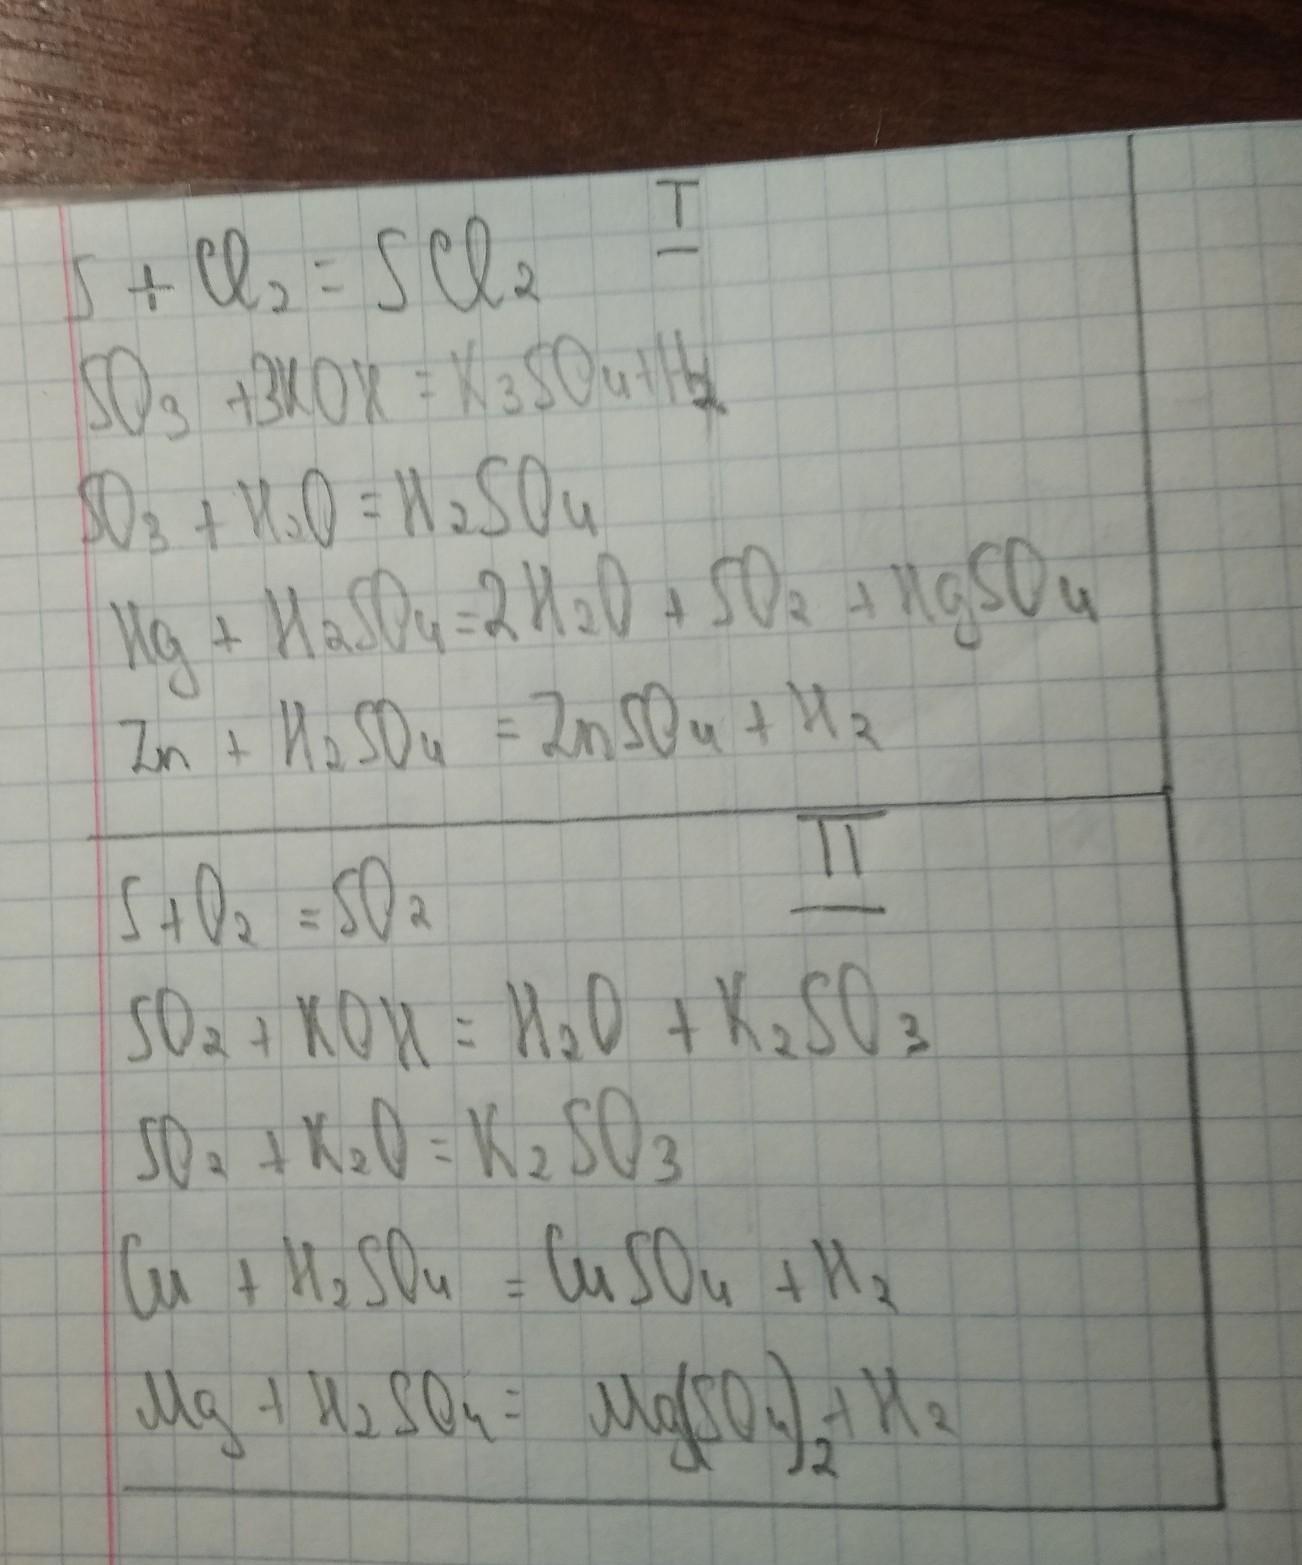 I
S + Cl₂ = SCl₂
SO₃ + 3KOH = K₃SO₄ + H₂
SO₃ + H₂O = H₂SO₄
Hg + H₂SO₄ = 2H₂O + SO₂ + HgSO₄
Zn + H₂SO₄ = ZnSO₄ + H₂
II
S + O₂ = SO₂
SO₂ + KOH = H₂O + K₂SO₃
SO₂ + K₂O = K₂SO₃
Cu + H₂SO₄ = CuSO₄ + H₂
Mg + H₂SO₄ = Mg(SO₄)₂ + H₂